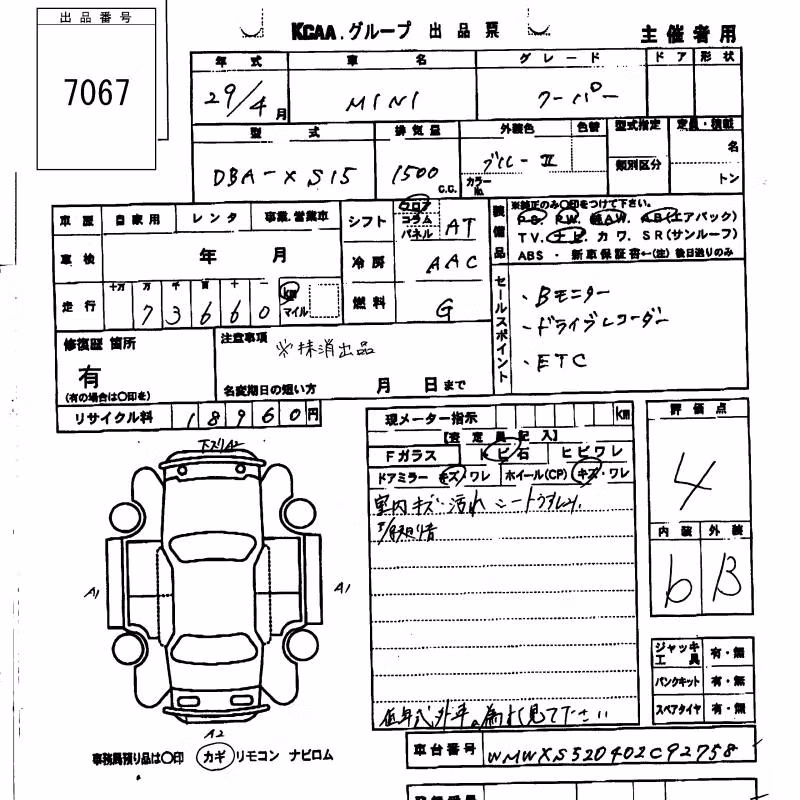 出品番号
7067
KCAA.グループ 出品票
主催者用
年式 車名 グレード ドア 形状
29/4月 MINI クーパー
型式 排気量 外装色 色替 型式指定 定員・積載
DBA-XS15 1500 C.C. ブルーII カラーNo. 類別区分 名 トン
車歴 自家用 レンタ 事業.営業車
車検 年 月
走行 十万 万 千 百 十 一
73660 km マイル
シフト フロア コラム パネル AT
冷房 AAC
燃料 G
装備品
※純正のみ〇印をつけて下さい。
P.S. P.W. 純AW. A.B(エアバック)
T V. ナビ. カワ. S R(サンルーフ)
A B S ・ 新車保証書←(注) 後日送りのみ
セールスポイント
・Bモニター
・ドライブレコーダー
・ETC
修復歴 箇所
有
(有の場合は〇印を)
注意事項
※抹消出品
名変期日の短い方 月 日まで
リサイクル料 18960円
現メーター指示 km
【査定員記入】
Fガラス トビ石 ヒビワレ
ドアミラー キズ/ワレ ホイール(CP) キズ・ワレ
室内キズ・汚れ シート
下ズリA2
A1
A1
A2
現車 見て下さい
評価点
4
内装 外装
b B
ジャッキ工具 有・無
パンクキット 有・無
スペアタイヤ 有・無
事務局預り品は〇印 カギ リモコン ナビロム
車台番号 WMWXS520402C92758